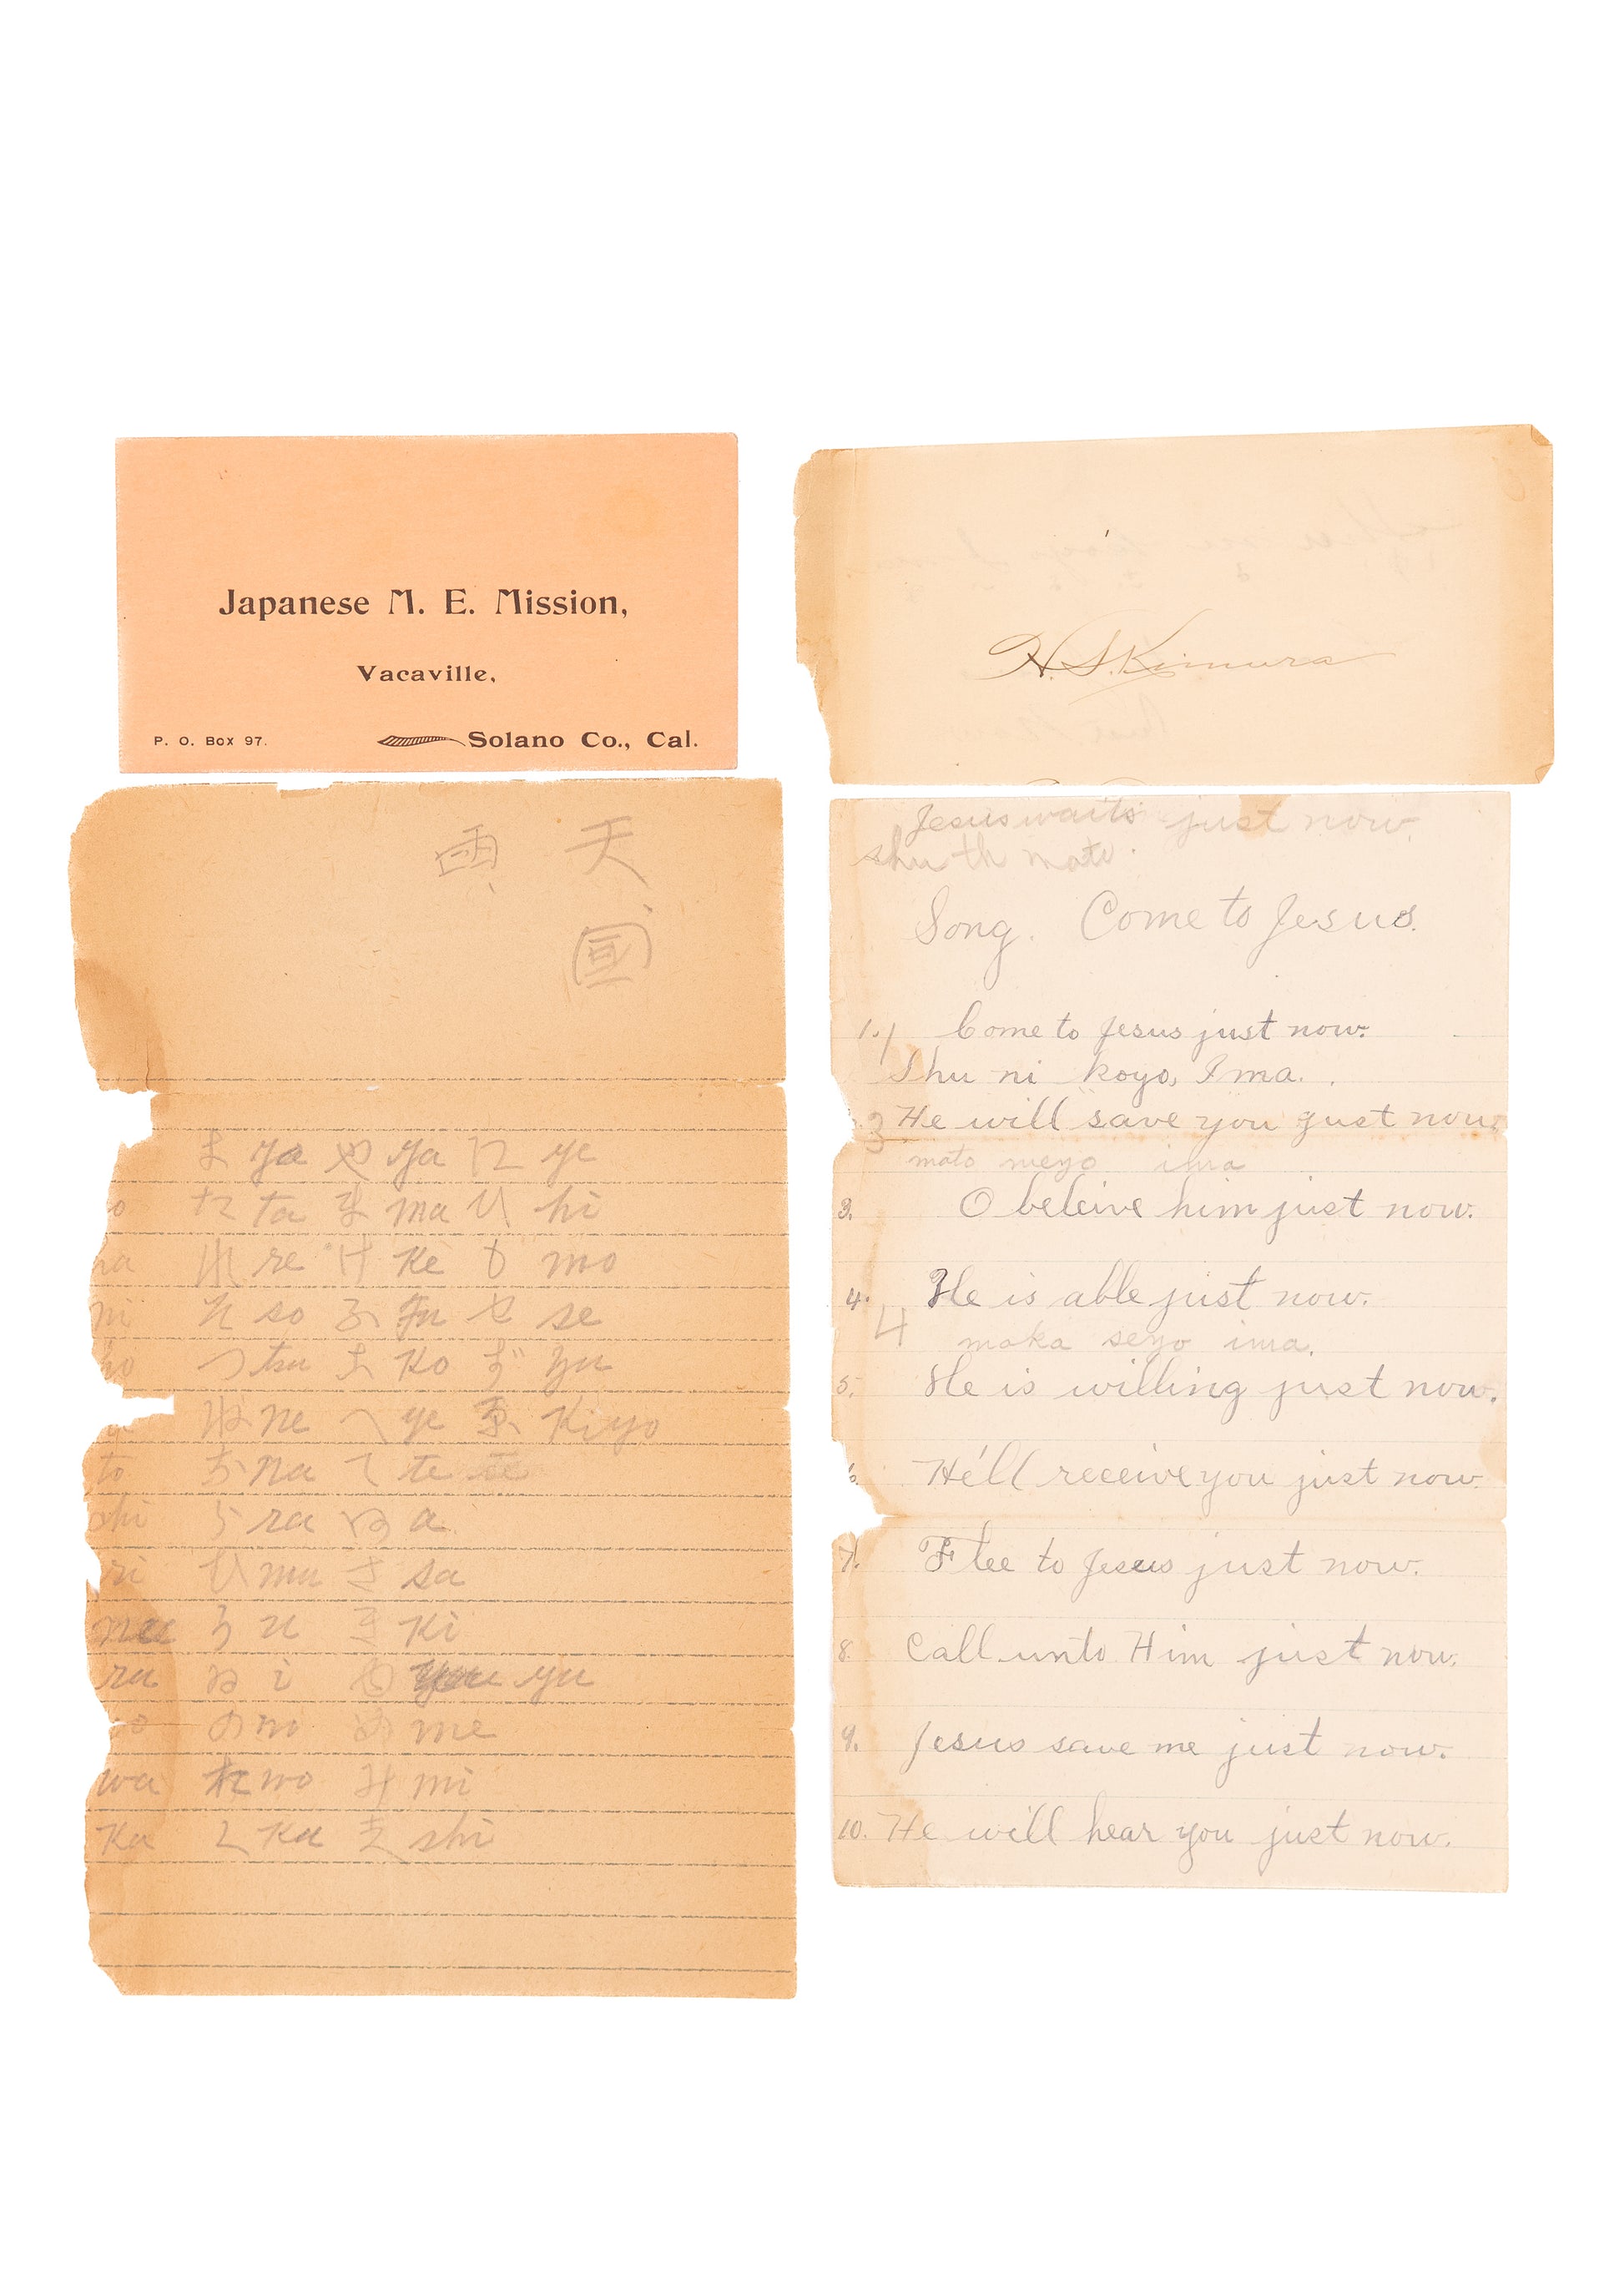 Japanese M. E. Mission,
Vacaville,
P. O. Box 97. Solano Co., Cal.
H. S. Kimura
雨 天
國
ya や ya ye
た ta ま ma ひ hi
れ re け ke も mo
ni そ so ふ Fu せ se
つ tsu こ Ko ず zu
ね ne へ ye Kiyo
to な Na て te te
chi ら ra あ a
ri む mu さ sa
nu う u き Ki
ru ゐ i ゆ yu
の no め me
wa を wo み mi
Ka く Ku し shi
Jesus waits just now.
shu th mate.
Song. Come to Jesus.
1. 1 Come to Jesus just now.
Shu ni koyo, Ima.
3 He will save you gust now.
mato meyo ima
3. O beleive him just now.
4. He is able just now.
4 maka seyo ima.
5. He is willing just now.
6. He'll receive you just now.
7. Flee to Jesus just now.
8. Call unto Him just now.
9. Jesus save me just now.
10. He will hear you just now.